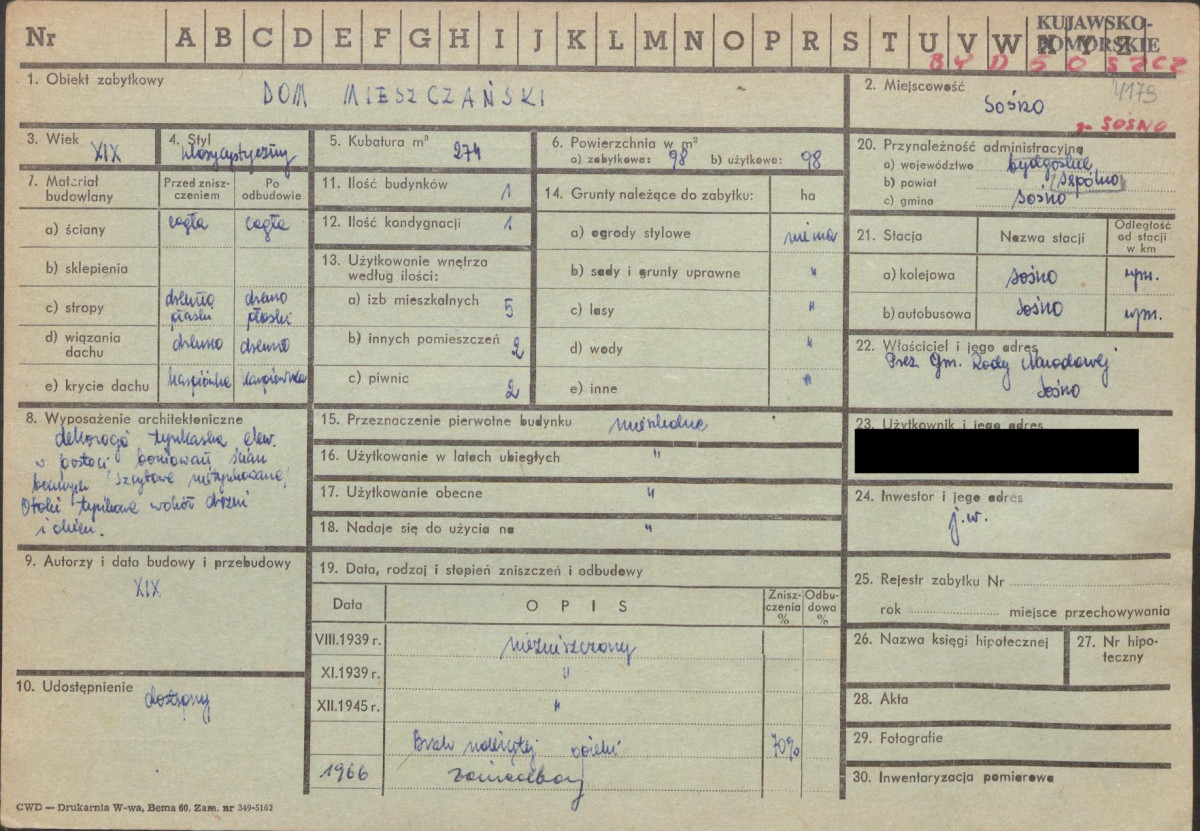 Nr A B C D E F G H I J K L M N O P R S T U V W X Y Z
KUJAWSKO-
POMORSKIE
BYDGOSZCZ
1. Obiekt zabytkowy
DOM MIESZCZAŃSKI
2. Miejscowość 4179
Sośno
g. SOSNO
3. Wiek
XIX
4. Styl
klasycystyczny
5. Kubatura m³ 274
6. Powierzchnia w m²
a) zabytkowa: 98 b) użytkowa: 98
7. Materiał budowlany
Przed zniszczeniem
Po odbudowie
a) ściany cegła cegła
b) sklepienia
c) stropy drewno płaski drewno płaski
d) wiązania dachu drewno drewno
e) krycie dachu karpiówka karpiówka
8. Wyposażenie architektoniczne
dekoracja tynkarska elew.
w postaci boniowań ścian
bocznych (szczytowe nietynkowane)
Otoki tynkowe wokół drzwi
i okien.
9. Autorzy i data budowy i przebudowy
XIX
10. Udostępnienie
dostępny
11. Ilość budynków 1
12. Ilość kondygnacji 1
13. Użytkowanie wnętrza
według ilości:
a) izb mieszkalnych 5
b) innych pomieszczeń 2
c) piwnic 2
14. Grunty należące do zabytku: ha
a) ogrody stylowe nie ma
b) sady i grunty uprawne "
c) lasy "
d) wody "
e) inne "
15. Przeznaczenie pierwotne budynku mieszkalne
16. Użytkowanie w latach ubiegłych "
17. Użytkowanie obecne "
18. Nadaje się do użycia na "
19. Data, rodzaj i stopień zniszczeń i odbudowy
Data OPIS Zniszczenia % Odbudowa %
VIII.1939 r. niezniszczony
XI.1939 r. "
XII.1945 r. "
Brak należytej opieki 70%
1966 zaniedbany
20. Przynależność administracyjna
a) województwo bydgoskie
b) powiat Sępólno
c) gmina Sośno
21. Stacja Nazwa stacji Odległość od stacji w km
a) kolejowa Sośno wm.
b) autobusowa Sośno wm.
22. Właściciel i jego adres
Prez. Gm. Rady Narodowej
Sośno
23. Użytkownik i jego adres
24. Inwestor i jego adres
j.w.
25. Rejestr zabytku Nr
rok miejsce przechowywania
26. Nazwa księgi hipotecznej
27. Nr hipoteczny
28. Akta
29. Fotografie
30. Inwentaryzacja pomiarowa
CWD — Drukarnia W-wa, Bema 60. Zam. nr 349-5162